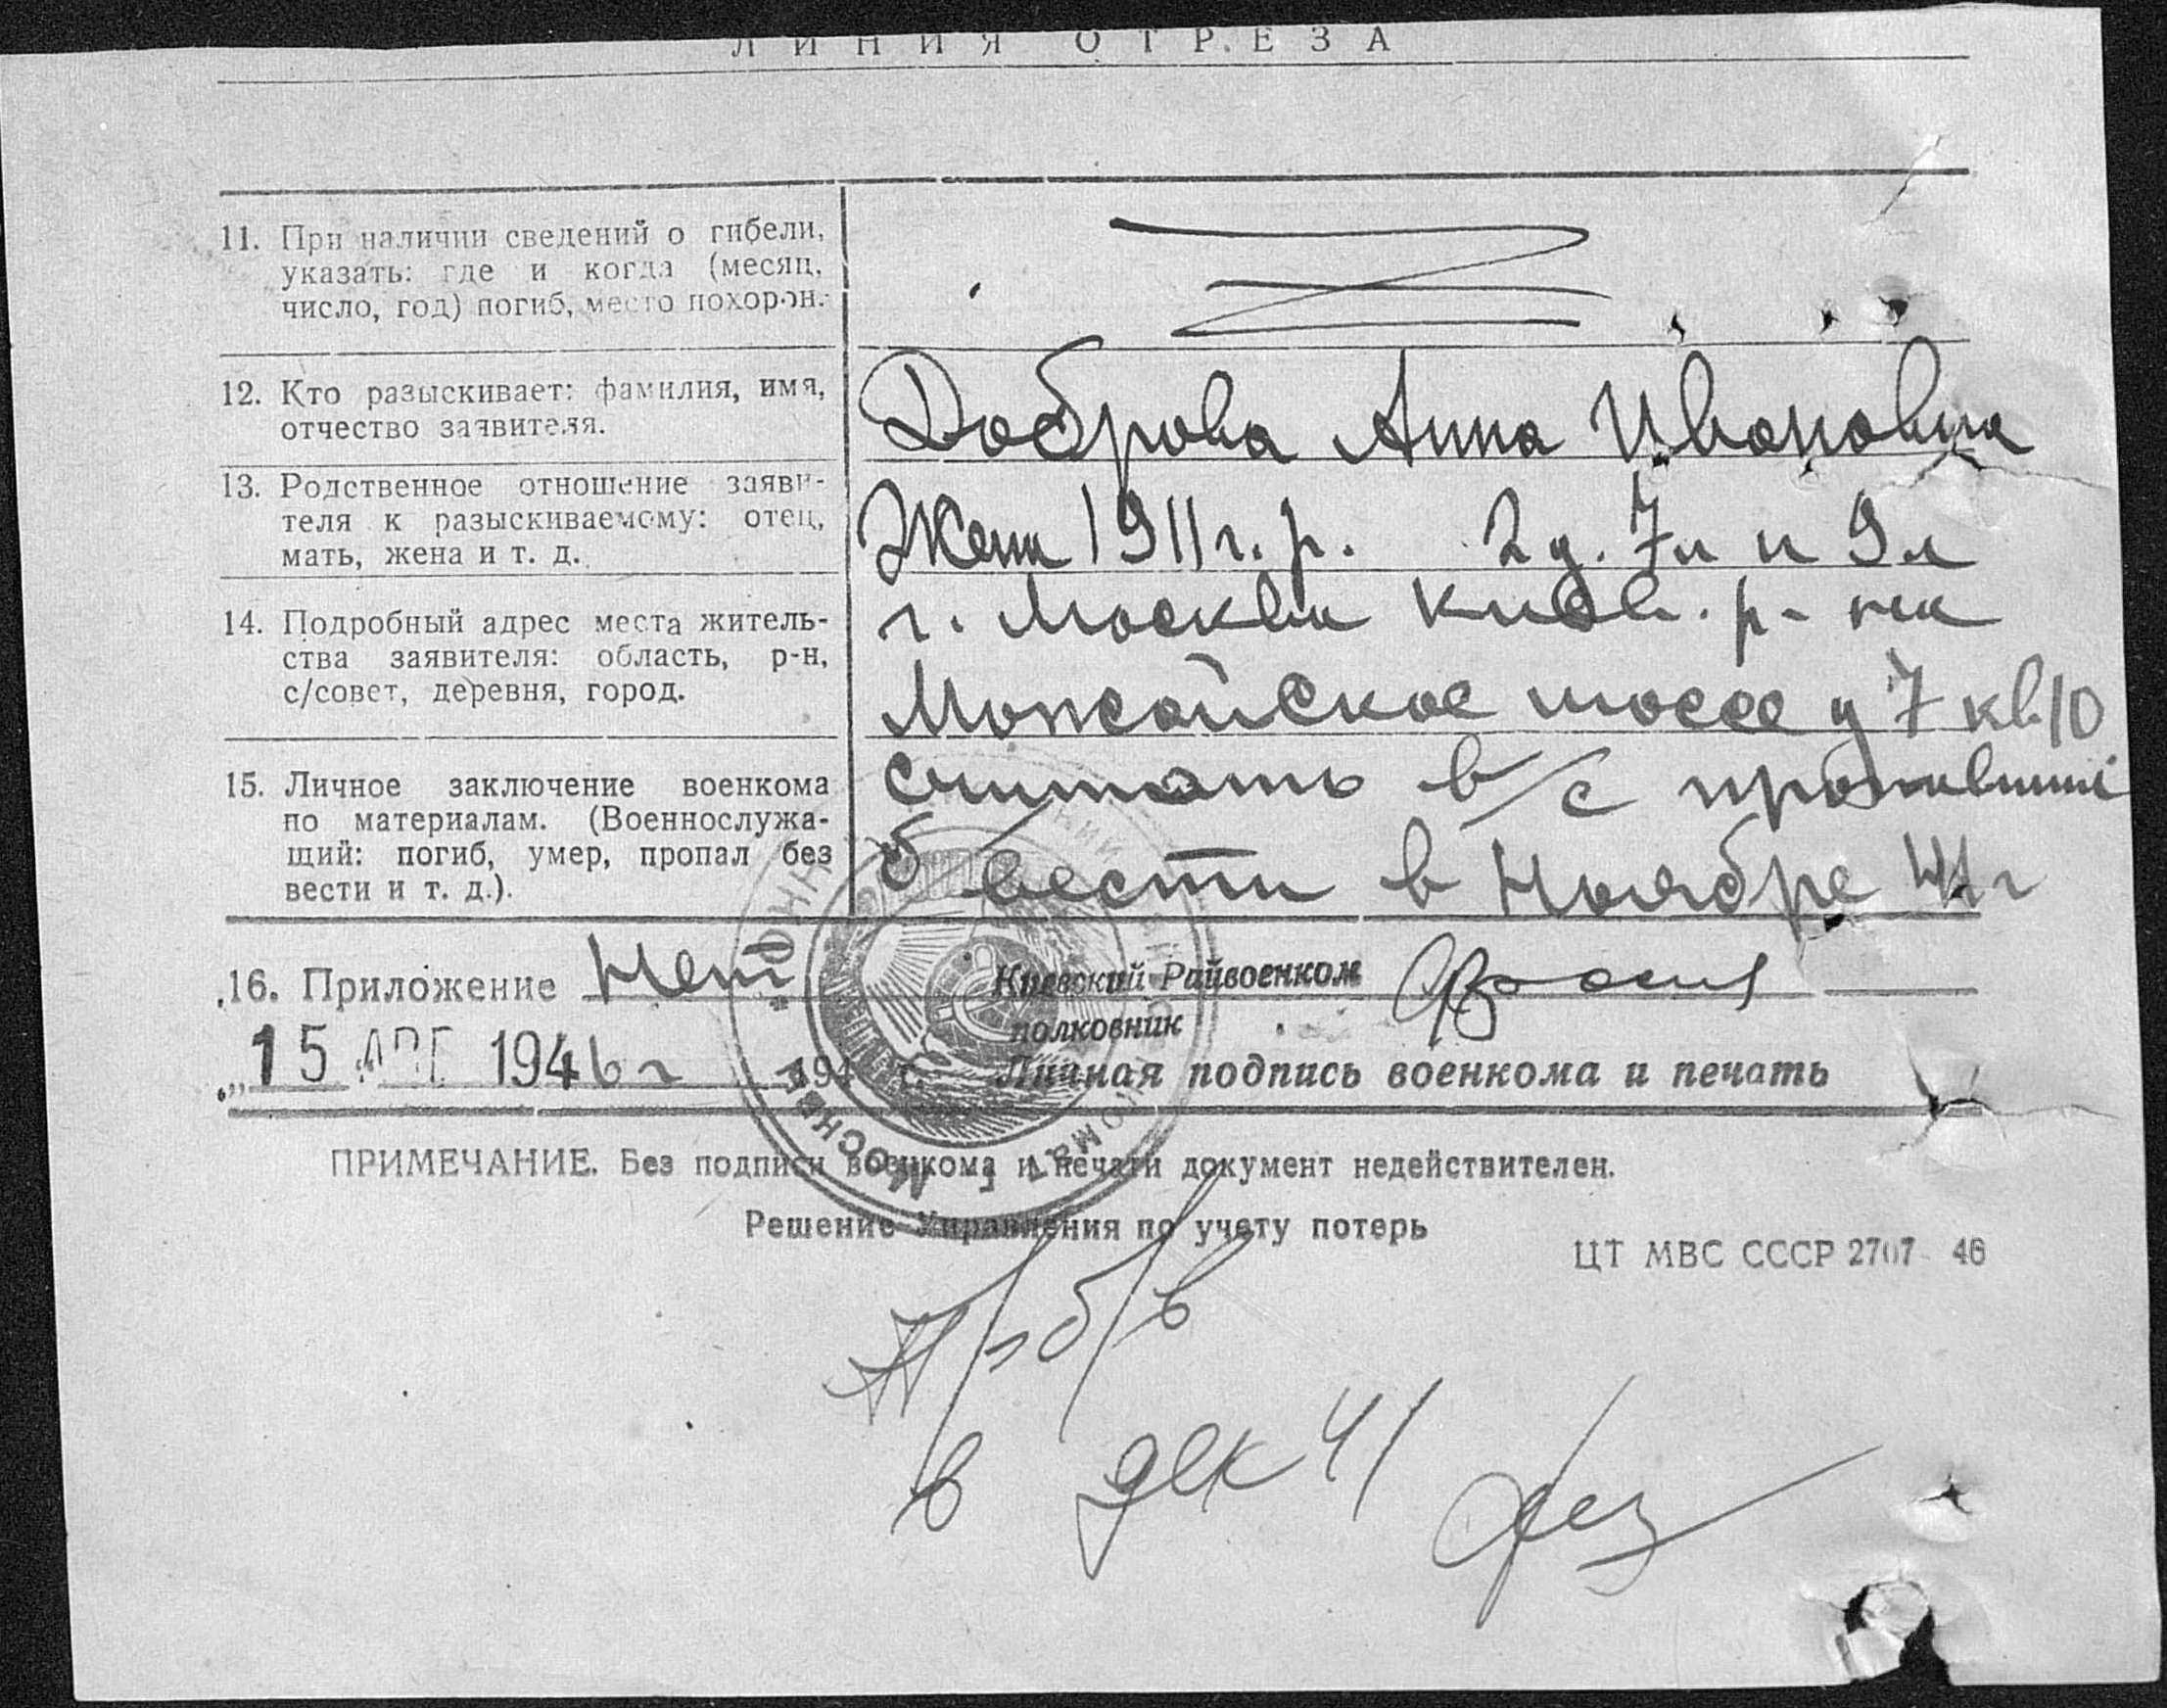 ЛИНИЯ ОТРЕЗА
11. При наличии сведений о гибели,
указать: где и когда (месяц,
число, год) погиб, место похорон.
12. Кто разыскивает: фамилия, имя,
отчество заявителя.
Доброва Анна Ивановна
13. Родственное отношение заяви-
теля к разыскиваемому: отец,
мать, жена и т. д.
Жена 1911 г. р. 2 д. 7 л и 9 л
14. Подробный адрес места житель-
ства заявителя: область, р-н,
с/совет, деревня, город.
г. Москва Киев. р-на
Можайское шоссе д 7 кв 10
15. Личное заключение военкома
по материалам. (Военнослужа-
щий: погиб, умер, пропал без
вести и т. д.).
Считать в/с пропавшим
б/вести в Ноябре 41 г
16. Приложение Нет
Киевский Райвоенком
полковник
„15 АПГ 1946 г 194 г.
Личная подпись военкома и печать
МОСКВЫ
ПРИМЕЧАНИЕ. Без подписи военкома и печати документ недействителен.
Решение Управления по учету потерь
ЦТ МВС СССР 2707 46
пр/б/в
в дек 41